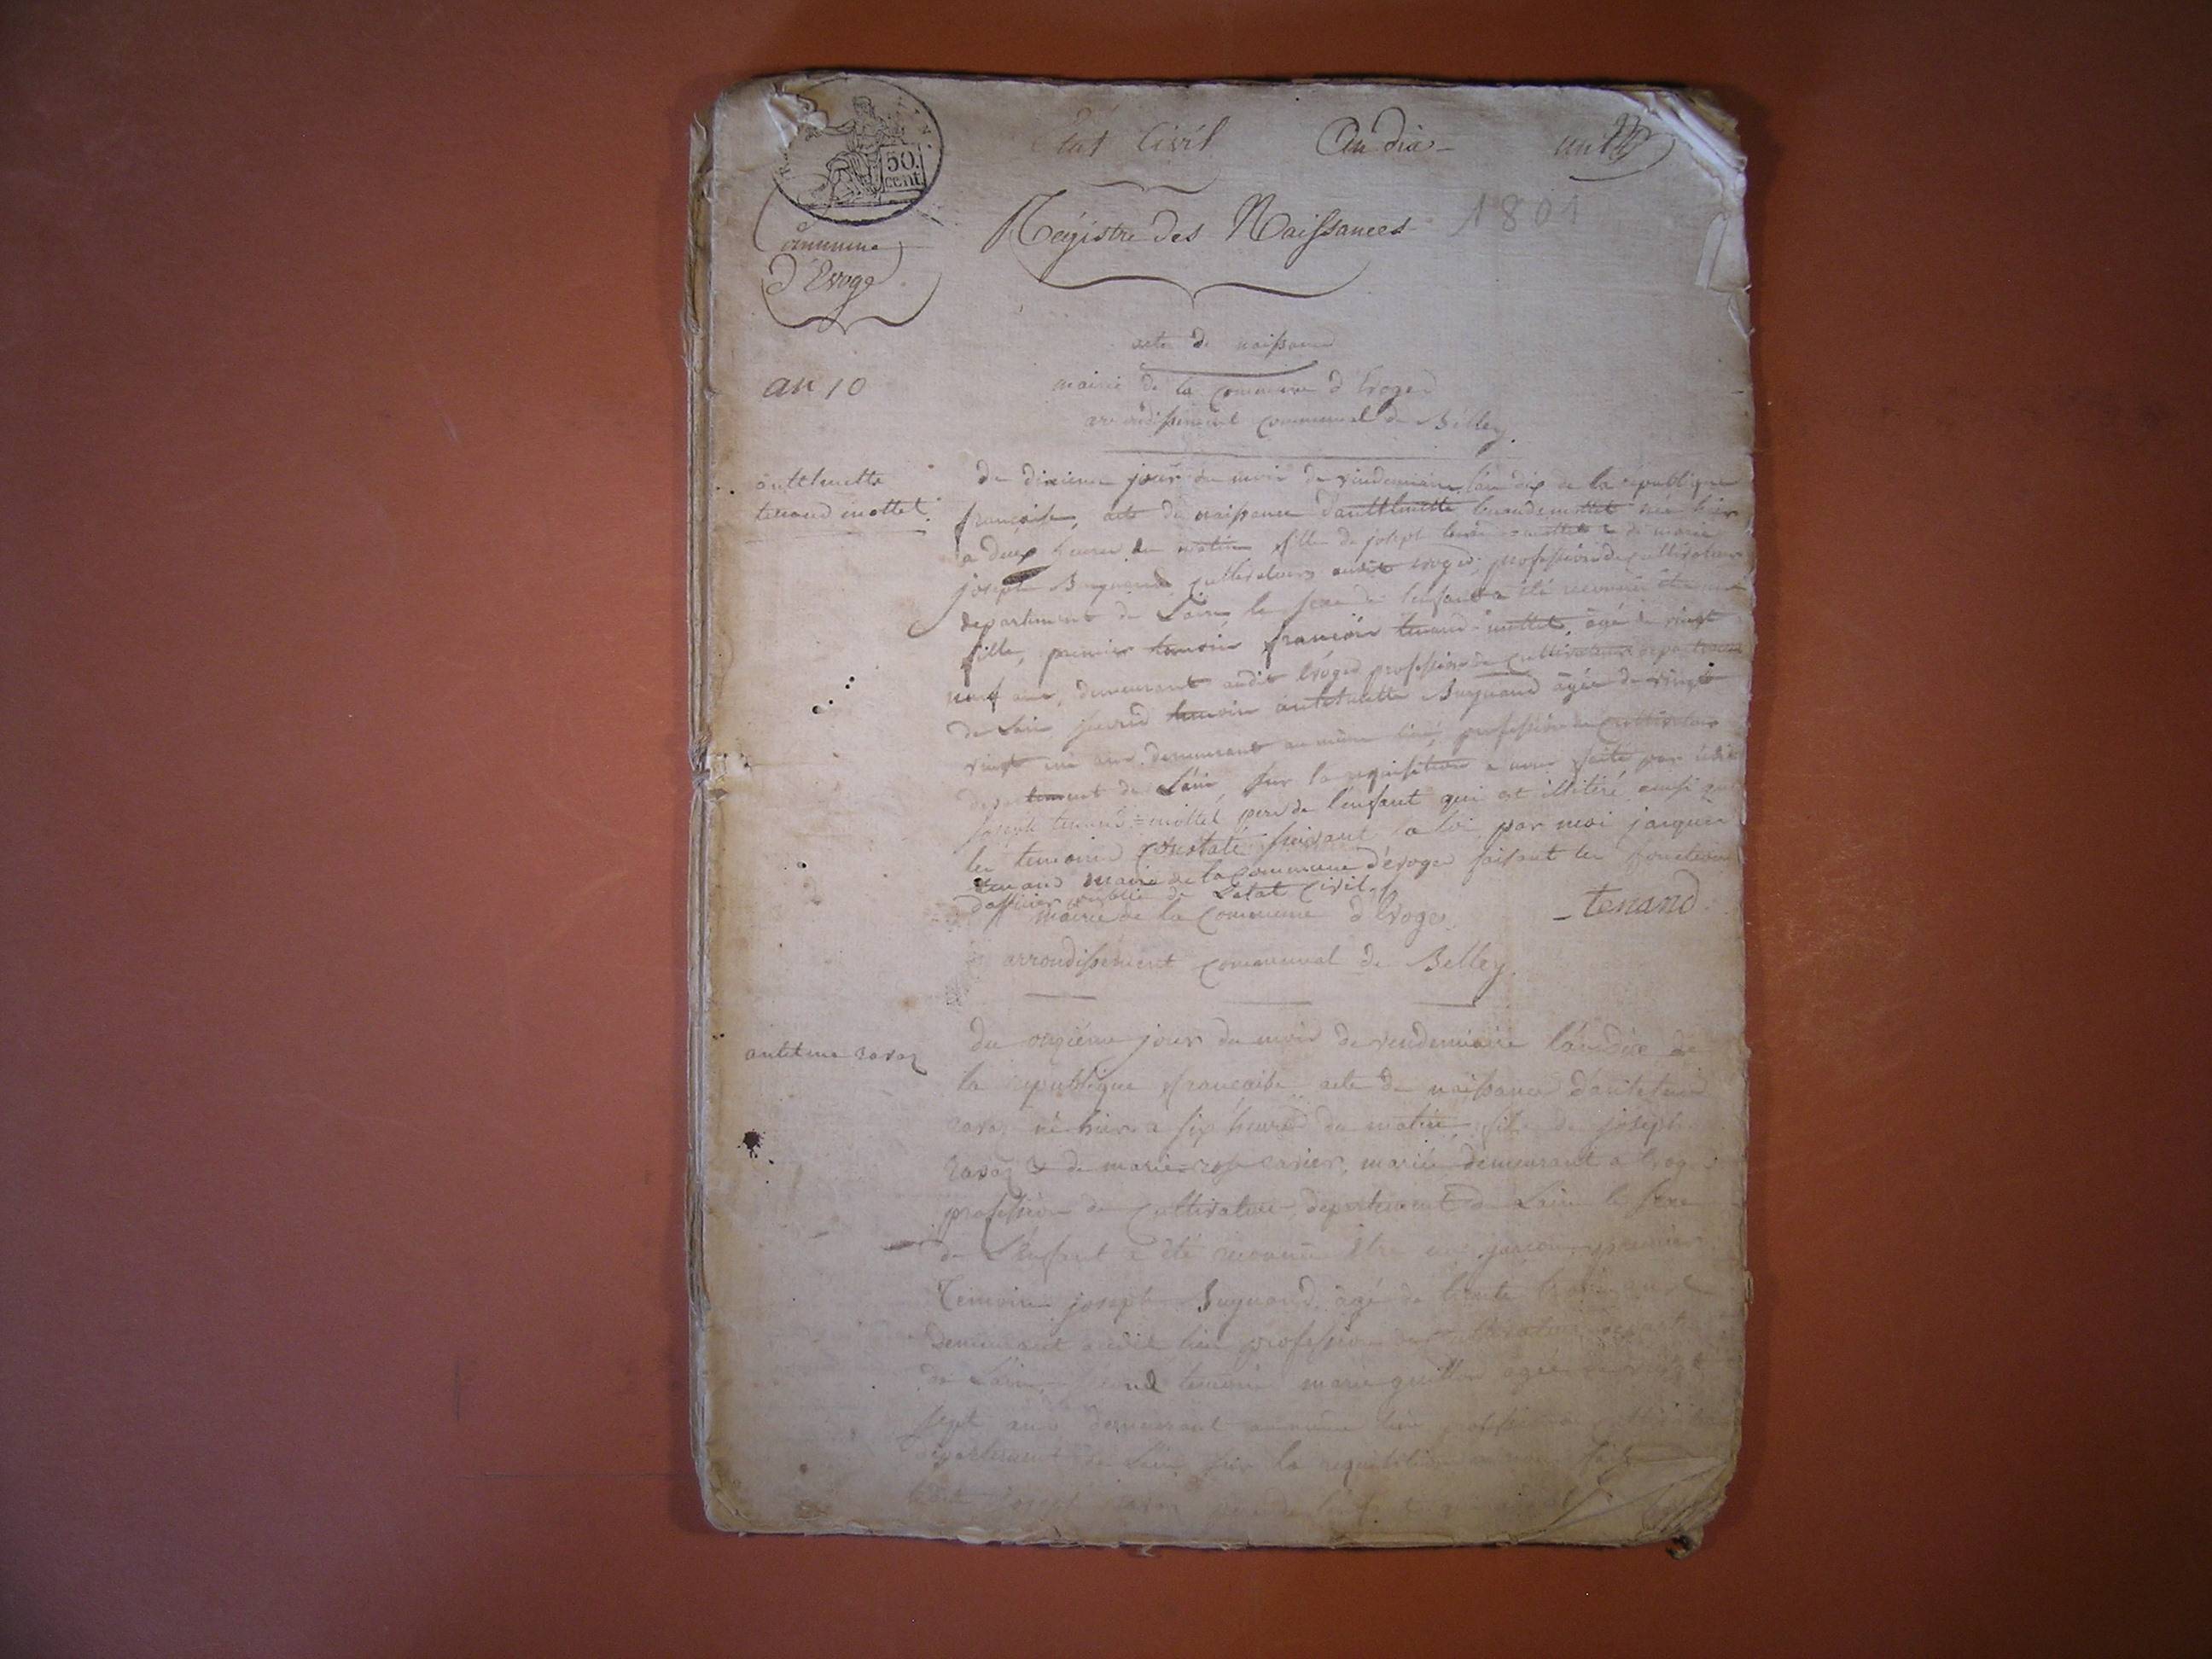 Etat Civil An dix
50 cent
Régistre des Naissances 1801
Commune
d'Evoge
acte de naissance
an 10
mairie de la commune d'Evoges
arrondissement communal de Belley.
anthelmette
tenand mottet.
du dixieme jour du mois de vendemiaire l'an dix de la république
francoise, acte de naissance d'anthelmette tenand mottet née hier
a deux heures du matin fille de joseph tenand = mottet & de marie
joseph Buynand cultivateurs audit evoges, profession de cultivateur
departement de Lain, le sexe de l'enfant a été reconnu être une
fille, premier temoin francois tenand = mottet, agé de vingt
neuf ans, demeurant audit Evoges profession de cultivateur departement
de Lain second temoin anthelmette Buynand agée de vingt
vingt un ans, demeurant au même lieu, profession de cultivateur
departement de Lain, sur la requisition a nous faite par
joseph tenand = mottet pere de l'enfant qui est illitéré ainsi que
les temoins constaté suivant la loi par moi jacques
tenand maire de la commune d'evoges faisant les fonctions
d'officier public de Letat civil.
tenand
mairie de la commune d'Evoges.
arrondissement communal de Belley.
antelme ravoz
du onzième jour du mois de vendemiaire l'an dix de
la republique francaise acte de naissance d'antelme
ravoz né hier a six heures du matin, fils de joseph
ravoz & de marie = rose mariés demeurant a Evoges
profession de cultivateur departement de Lain le sexe
de L'enfant a été reconnu être un garcon, premier
Temoin joseph Buynand, agé de trente trois ans
demeurant audit lieu profession de cultivateur depart
de Lain, second temoin marie guillon agée de vingt
sept ans demeurant au même lieu profession
departement de Lain sur la requisition a nous faite
joseph ravoz pere de l'enfant